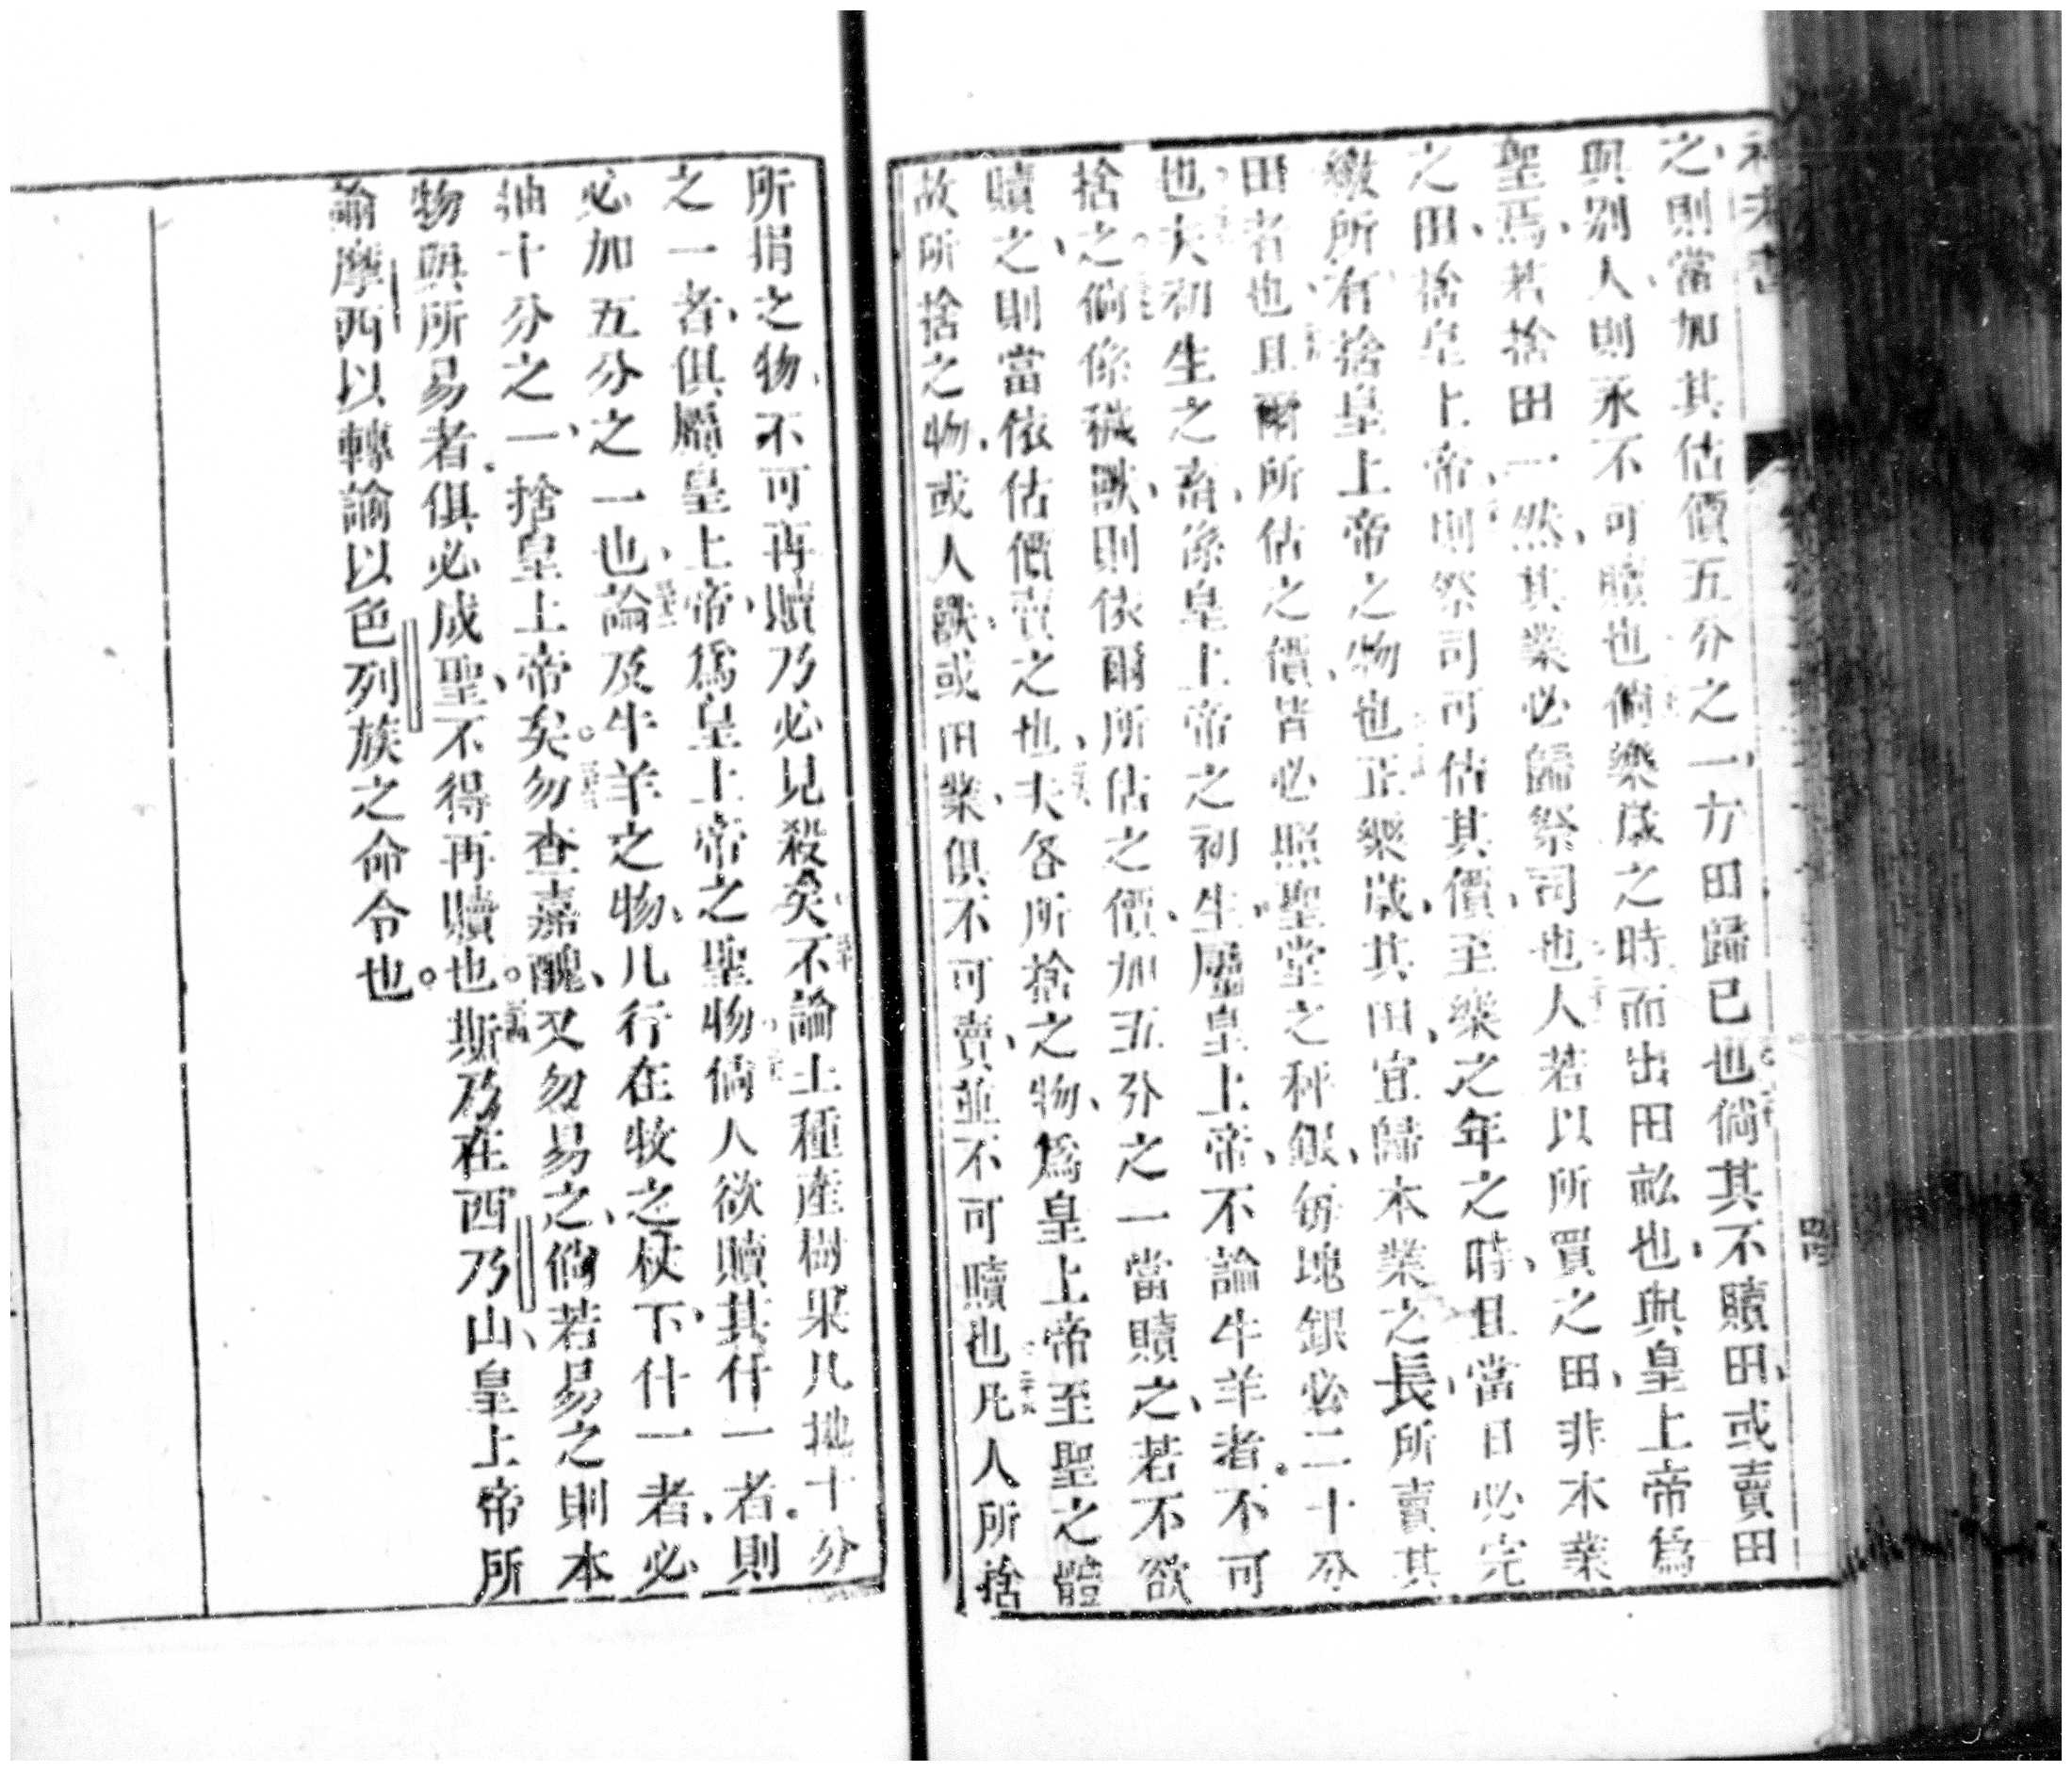 之、則當加其估價五分之一、方田歸已也。倘其不贖田、或賣田
與别人、則永不可贖也、倘樂歲之時而出田訟也、與皇上帝爲
聖焉、若捨田一然、其業必歸祭司也、人若以所買之田、非本業
之田捨皇上帝、則祭司可估其價、至樂之年之時、且當日必完
繳所有捨皇上帝之物也、正樂歲、其田、宜歸本業之長、所賣其
田者也、且爾所估之價、皆必照聖堂之秤銀、每塊銀必二十分
也、夫初生之畜、係皇上帝之初生、屬皇上帝、不論牛羊者。不可
捨之、倘係穢獸、則依爾所估之價、加五分之一當贖之、若不欲
贖之、則當依估價賣之也、夫各所捨之物、爲皇上帝至聖之體
故所捨之物、或人獸、或田業、俱不可賣、並不可贖也、凡人所捨
所捐之物、不可再贖、乃必見殺矣、不論土種產樹果凡地十分
之一者、俱屬皇上帝、爲皇上帝之聖物、倘人欲贖其什一者。則
必加五分之一也、論及牛羊之物、凡行在牧之杖下、什一者、必
抽十分之一、捨皇上帝矣。勿查嘉醜、又勿易之、倘若易之則本
物與所易者。俱必成聖、不得再贖也。斯乃在西乃山、皇上帝所
諭摩西以轉諭以色列族之命令也。